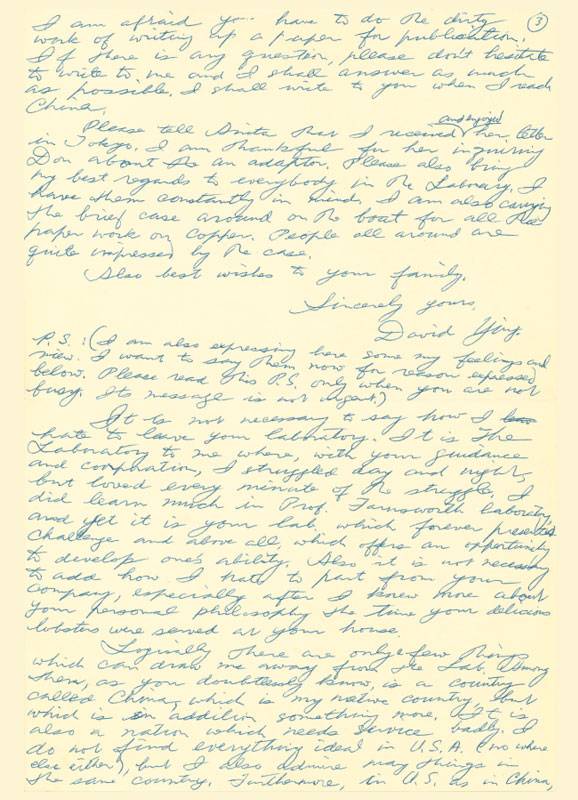 I am afraid you have to do the dirty
③
work of writing up a paper for publication.
If there is any question, please don't hesitate
to write to me and I shall answer as much
as possible. I shall write to you when I reach
China.
Please tell Anita that I received and enjoyed her letter
in Tokyo. I am thankful for her inquiring
Don about the an adaptor. Please also bring
my best regards to everybody in the Laboratory. I
have them constantly in mind. I am also carrying
the brief case around on the boat for all the
paper work on copper. People all around are
quite impressed by the case.
Also best wishes to your family.
Sincerely yours,
David Ying.
P.S.: (I am also expressing here some my feelings and
view. I want to say them now for reason expressed
below. Please read this P.S. only when you are not
busy. Its message is not urgent.)
It is not necessary to say how I
hate to leave your laboratory. It is The
Laboratory to me where, with your guidance
and cooperation, I struggled day and night,
but loved every minute of the struggle. I
did learn much in Prof. Farnsworth laboratory,
and yet it is your lab. which forever presents
challenge and above all, which offers an opportunity
to develop one's ability. Also it is not necessary
to add how I hate to part from your
company, especially after I knew more about
your personal philosophy the time your delicious
lobsters were served at your house.
Logically there are only few things
which can draw me away from the Lab. Among
them, as you doubtlessly know, is a country
called China, which is my native country but
which is in addition something more. It is
also a nation which needs service badly. I
do not find everything ideal in U.S.A. (no where
else either), but I also admire many things in
the same country. Furthermore, in U.S. as in China,